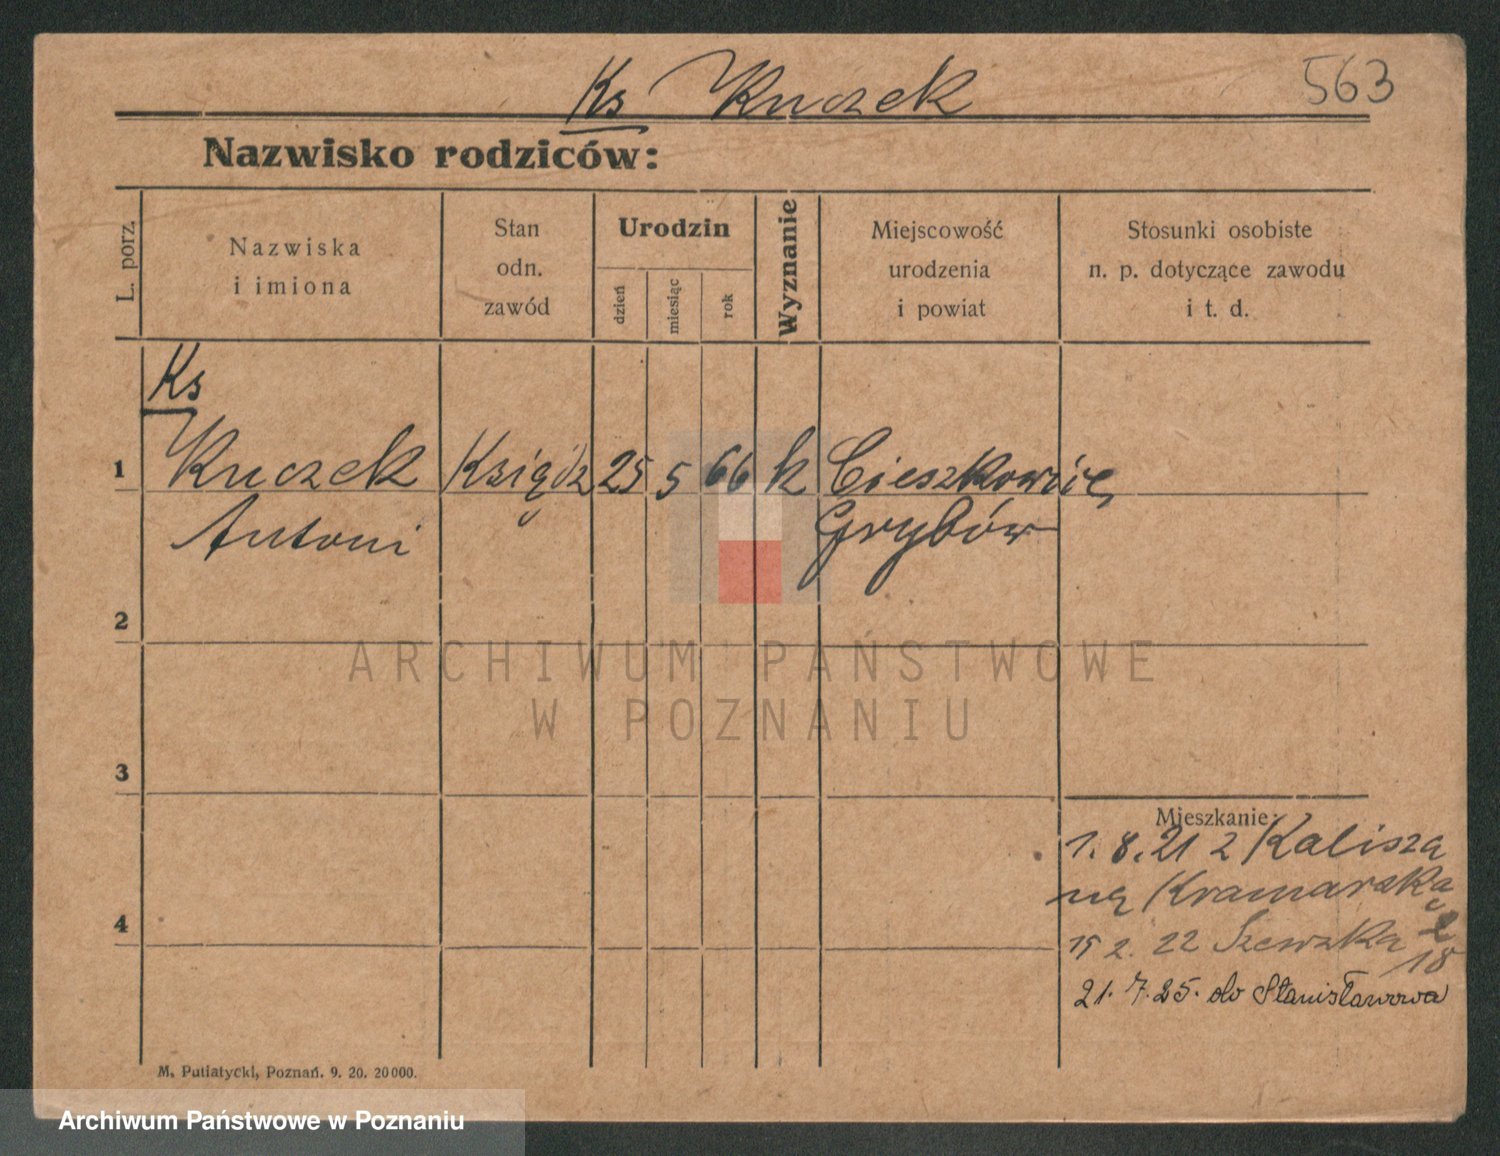 Ks Kuczek
563
Nazwisko rodziców:
L. porz.
Nazwiska
i imiona
Stan
odn.
zawód
Urodzin
dzień
miesiąc
rok
Wyznanie
Miejscowość
urodzenia
i powiat
Stosunki osobiste
n. p. dotyczące zawodu
i t. d.
Ks
1 Kuczek Ksiądz 25 5 66 k Cieszkowice
Antoni Grybów
2
ARCHIWUM PAŃSTWOWE
W POZNANIU
3
Mieszkanie:
1. 8. 21 z Kalisza
na Kramarską
4
15 2. 22 Szewska 18
21. 7. 25. do Stanisławowa
M. Putiatycki, Poznań. 9. 20. 20000.
Archiwum Państwowe w Poznaniu